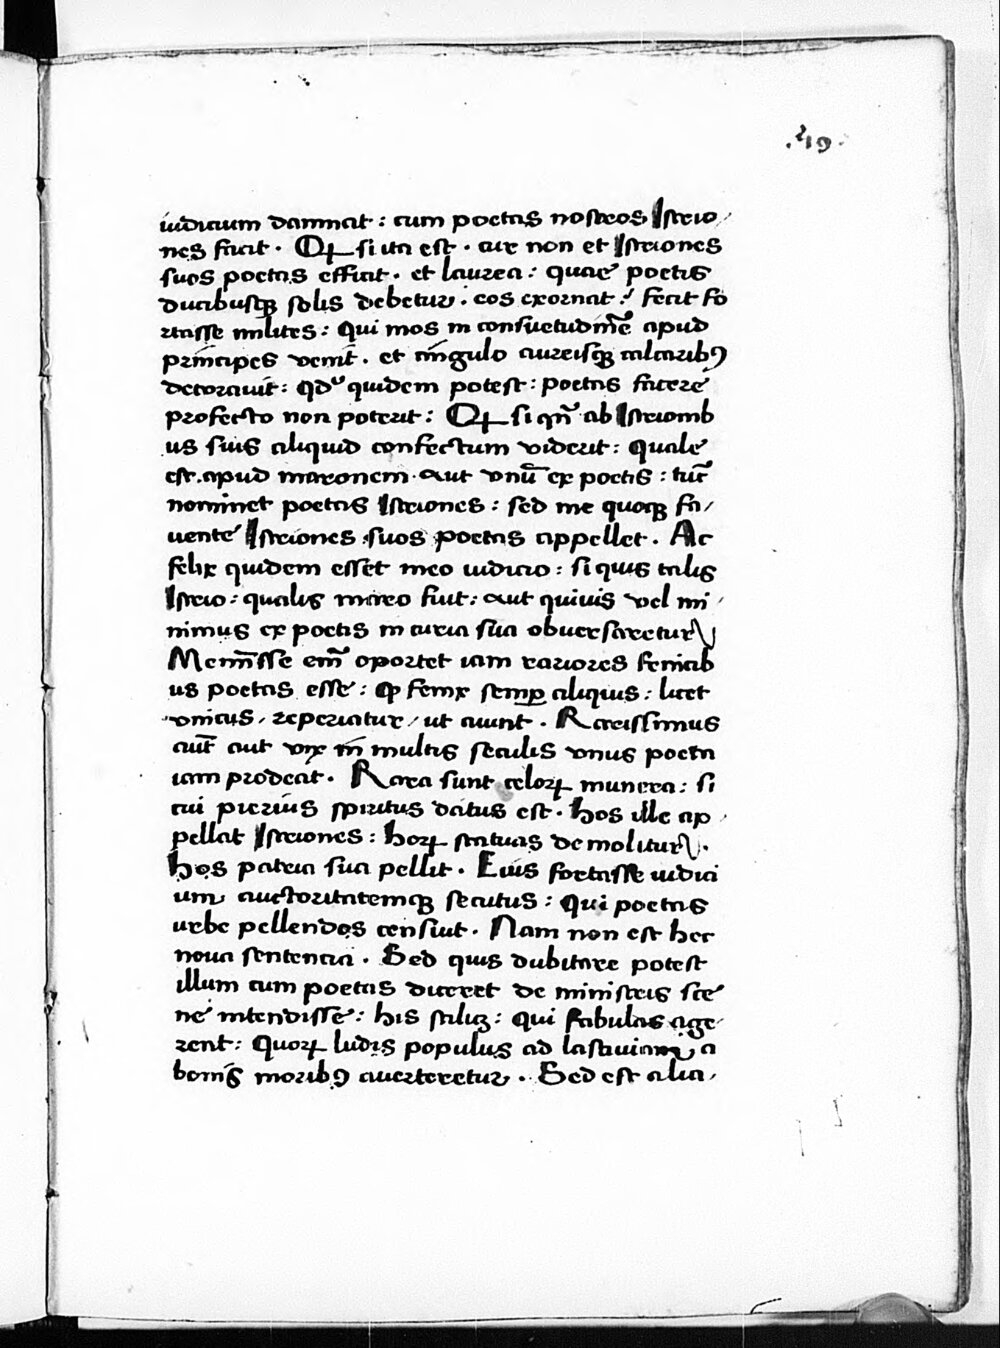 .219.
iudicium damnat : cum poetas nostros Istrio
nes facit . Qꝫ si ita est . cur non et Istriones
suos poetas efficit . et laurea : quae poetis
ducibusqꝫ solis debetur . eos exornat ? fecit fo
rtasse milites : Qui mos in consuetudinē apud
principes venit . et cingulo aureisqꝫ calcaribꝰ
decoravit : qd quidem potest : poetas facere
profecto non poterit : Qꝫ si qn̄ ab Istrionib
us suis aliquid confectum viderit : Quale
est . apud maronem . aut vnū ex poetis : tūc
nominet poetas Istriones : sed me quoqꝫ fa
uente Istriones suos poetas appellet . Ac
felix quidem esset meo iudicio : si quis talis
Istrio : qualis maro fuit : aut quiuis vel mi
nimus ex poetis in curia sua obuersaretur
Meminisse em̄ oportet iam rariores fenicib
us poetas esse : Qꝫ fenix semꝑ aliquis : licet
vnicus , reperiatur , ut aiunt . Rarissimus
aut̄ aut vix in multis seculis vnus poeta
iam prodeat . Rara sunt celoꝝ munera : si
cui pierius spiritus datus est . hos ille ap
pellat Istriones : hoꝝ statuas demolitur .
hos patria sua pellit . Eius fortasse iudici
um auctoritatemqꝫ secutus : Qui poetas
urbe pellendos censuit . Nam non est hec
noua sentencia . Sed quis dubitare potest
illum cum poetas diceret de ministris sce
ne intendisse : his scilicꝫ : qui fabulas age
rent : Quoꝝ ludis populus ad lasciuiam a
bonis moribꝰ auerteretur . Sed est alia